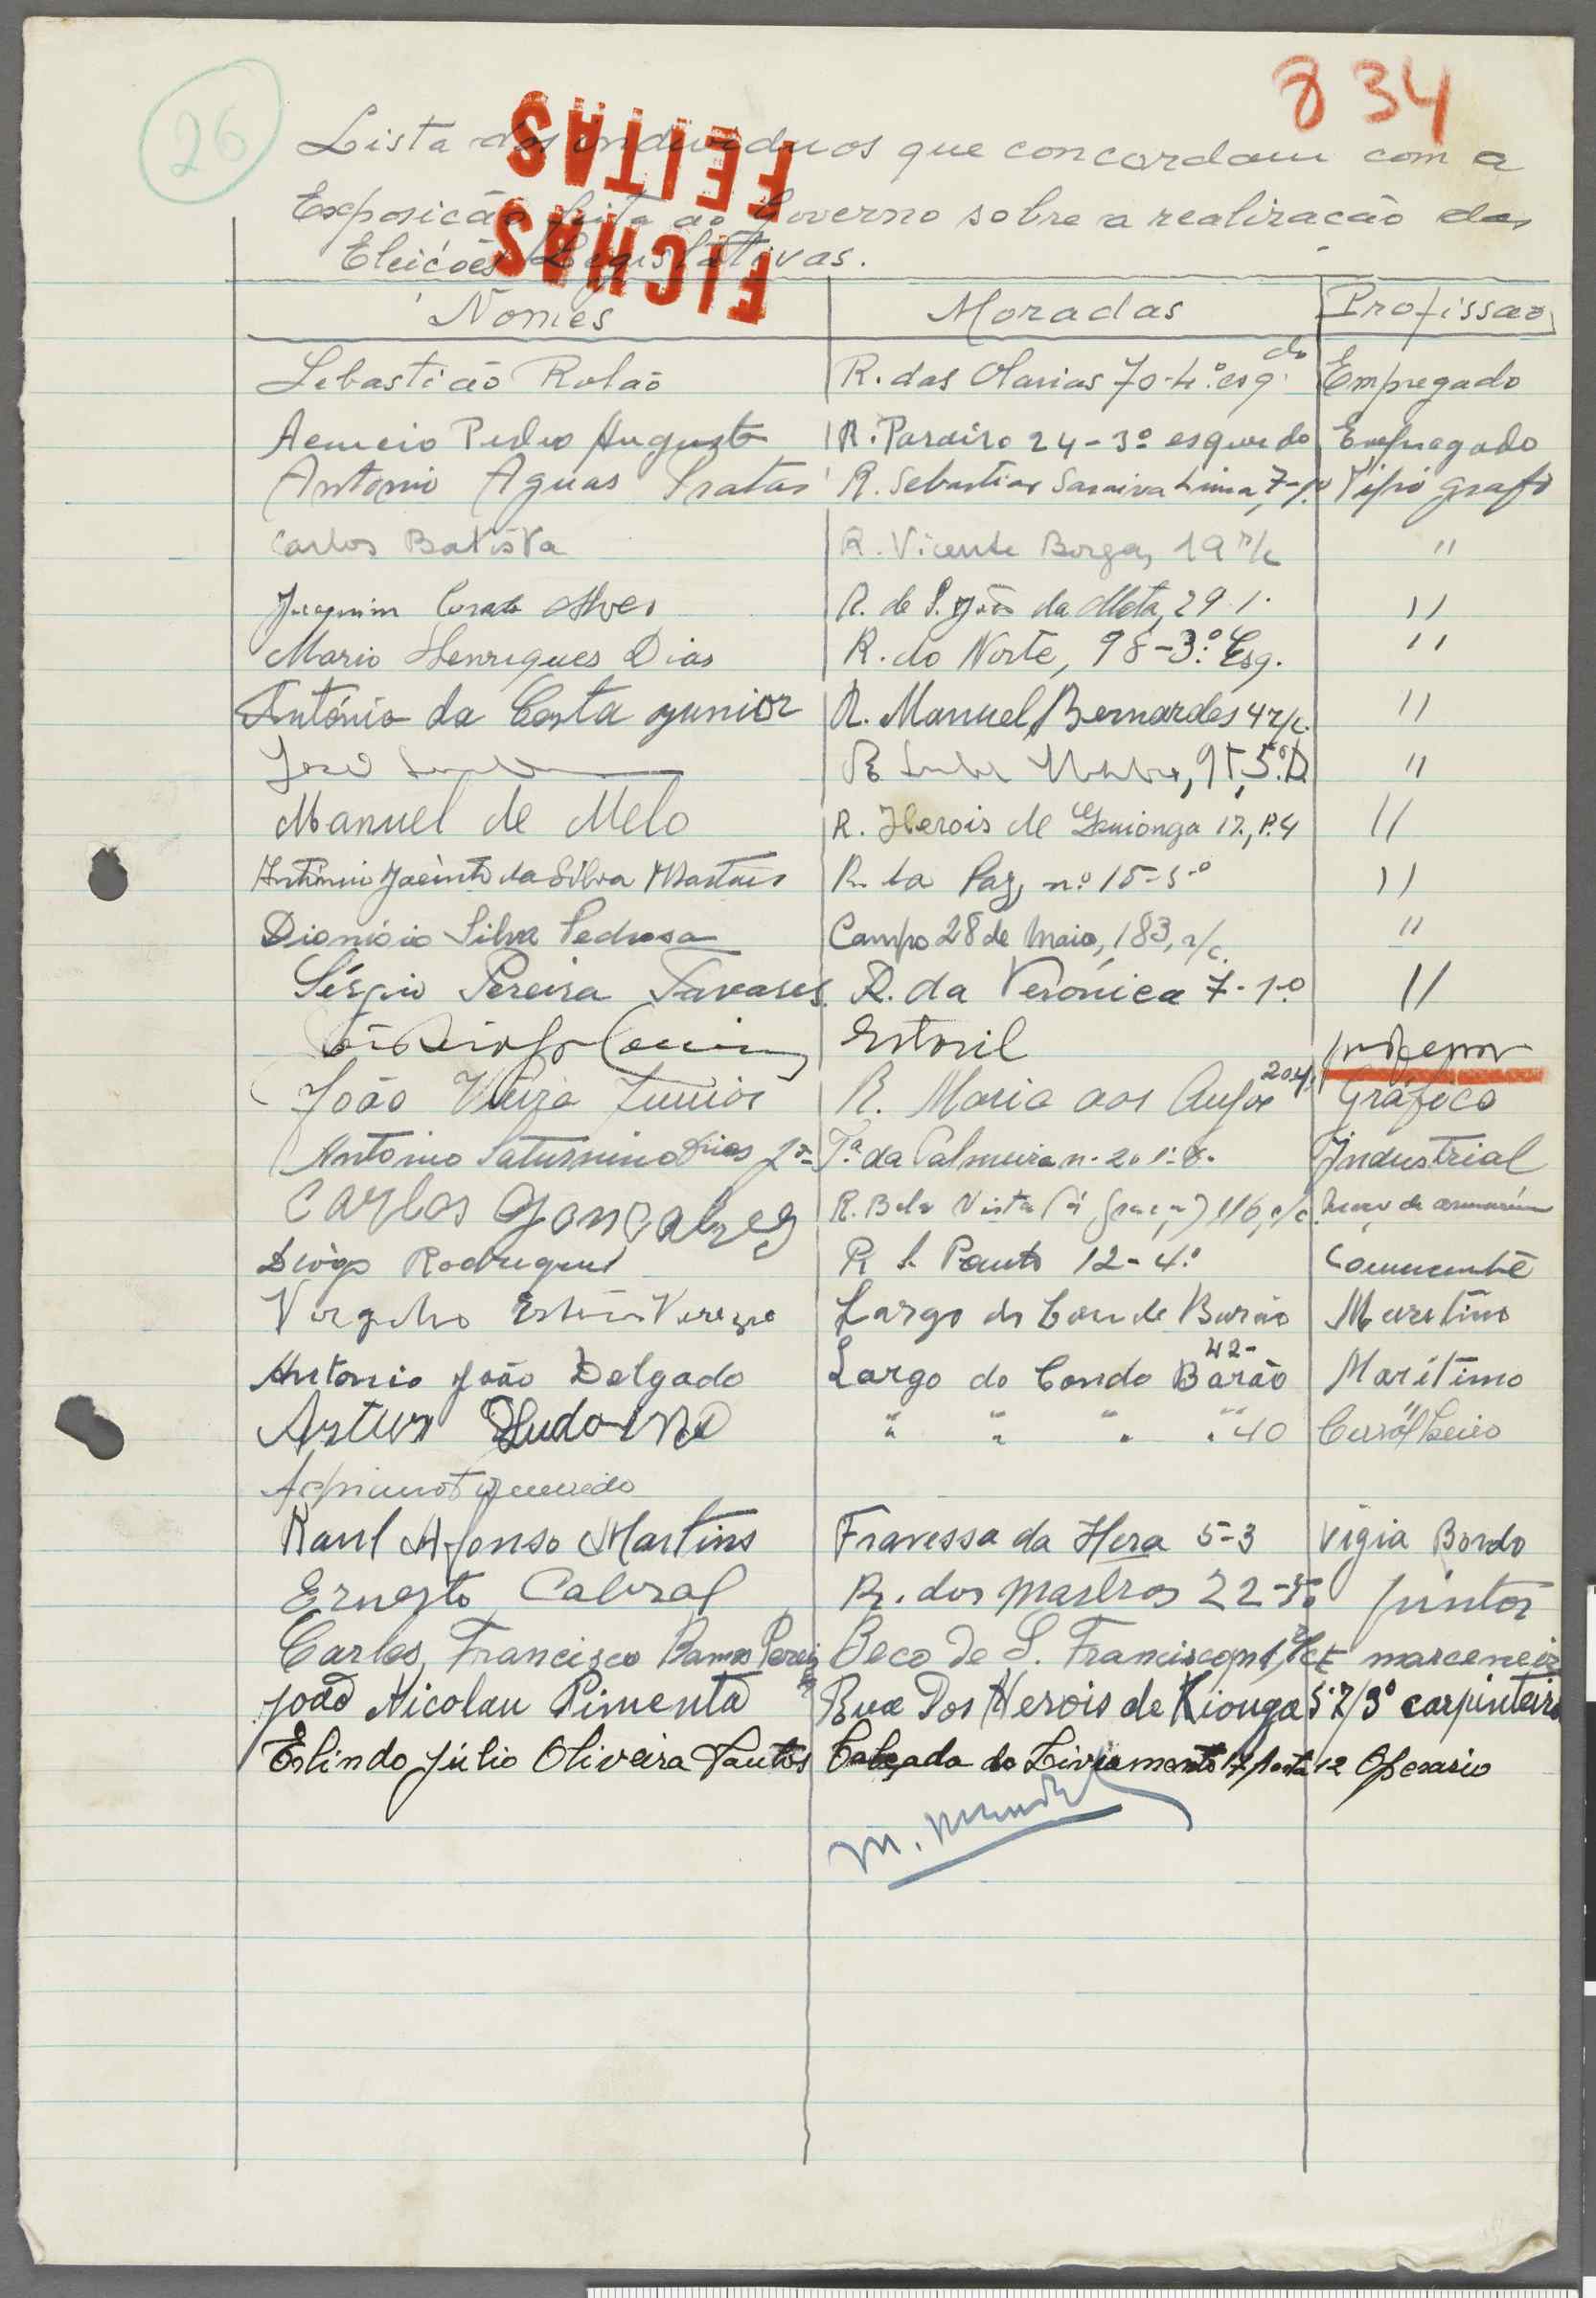 26
834
FICHAS
FEITAS
Lista dos individuos que concordam com a
Exposicão feita ao Governo sobre a realizacão das
Eleições Legislativas.
Nomes Moradas Profissão
Sebastião Rolão R. das Olarias 70-4.º esq. do Empregado
Acurcio Pedro Augusto R. Paraiso 24-3º esquerdo Empregado
Antonio Aguas Pratas R. Sebastião Saraiva Lima, 7- Tipógrafo
Carlos Batista R. Vicente Borga, 19 r/c "
Joaquim Alves R. de S. João da Mata, 29 1. "
Mario Henriques Dias R. do Norte, 98-3.º Esq. "
António da Costa Junior R. Manuel Bernardes 4 r/c. "
José 95, 5.º D "
Manuel de Melo R. Herois de Quionga 17, P.4 "
António Jacinto da Silva Martins R. da Paz, n.º 15-3.º "
Dionisio Silva Pedrosa Campo 28 de Maio, 183, r/c. "
Sérgio Pereira Tavares R. da Verónica 7-1.º "
Estoril professor
João Vieira Junior R. Maria aos Anjos 204 Gráfico
Antonio Saturnino Dias T.ª da Palmeira n. 20 1.º Industrial
Carlos Gonçalves R. Bela Vista (á Graça) 116, r/c de armazém
Diogo Rodrigues R. S. Paulo 12-4.º
Largo do Conde Barão Maritimo
Antonio João Delgado Largo do Conde Barão 42- Maritimo
Artur Ludovino " " " " 40 Serralheiro
Raul Afonso Martins Travessa da Hera 5-3 Vigia Bordo
Ernesto Cabral R. dos Mastros 22- pintor
Carlos Francisco Ramos Pereira Beco de S. Francisco marceneiro
João Nicolau Pimenta Rua Dos Herois de Kionga 57/3º carpinteiro
Erlindo Júlio Oliveira Santos Calçada do Livramento 17 porta 12 Operario
M.